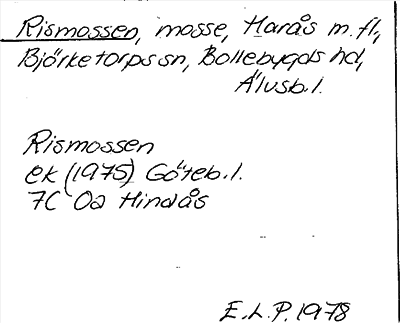 Rismossen, mosse, Harås m.fl.,
Björketorps sn, Bollebygds hd,
Älvsb.l.
Rismossen
ek (1975) Göteb.l.
7C 0a Hindås
E.L.P. 1978